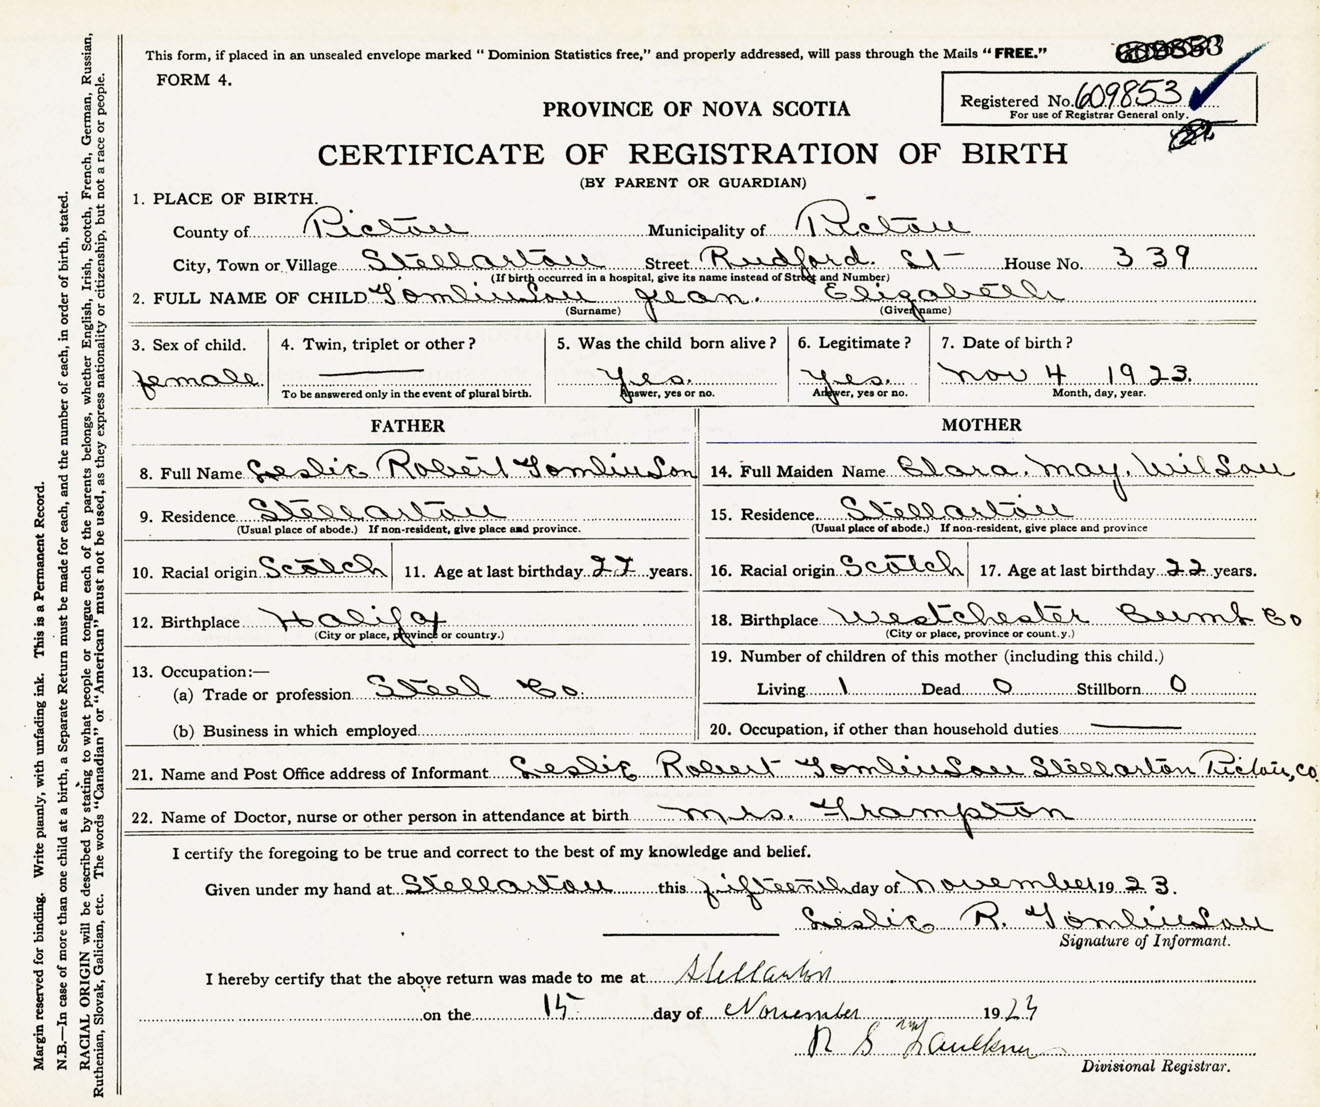 This form, if placed in an unsealed envelope marked " Dominion Statistics free," and properly addressed, will pass through the Mails " FREE."
FORM 4.
Registered No. 609853
For use of Registrar General only.
PROVINCE OF NOVA SCOTIA
CERTIFICATE OF REGISTRATION OF BIRTH
(BY PARENT OR GUARDIAN)
1. PLACE OF BIRTH.
County of Pictou Municipality of Pictou
City, Town or Village Stellarton Street Rudford. St House No. 339
(If birth occurred in a hospital, give its name instead of Street and Number)
2. FULL NAME OF CHILD Tomlinson Jean. Elizabeth
(Surname) (Given name)
3. Sex of child. 4. Twin, triplet or other ? 5. Was the child born alive ? 6. Legitimate ? 7. Date of birth ?
female. Yes. Yes. Nov 4 1923.
To be answered only in the event of plural birth. Answer, yes or no. Answer, yes or no. Month, day, year.
FATHER MOTHER
8. Full Name Leslie Robert Tomlinson 14. Full Maiden Name Clara. May. Wilson
9. Residence Stellarton 15. Residence Stellarton
(Usual place of abode.) If non-resident, give place and province. (Usual place of abode.) If non-resident, give place and province
10. Racial origin Scotch 11. Age at last birthday years. 16. Racial origin Scotch 17. Age at last birthday 22 years.
12. Birthplace Halifax 18. Birthplace Westchester Cumb Co
(City or place, province or country.) (City or place, province or count.y.)
19. Number of children of this mother (including this child.)
13. Occupation:—
(a) Trade or profession Steel Co. Living 1 Dead 0 Stillborn 0
(b) Business in which employed 20. Occupation, if other than household duties
21. Name and Post Office address of Informant Leslie Robert Tomlinson Stellarton Pictou, Co
22. Name of Doctor, nurse or other person in attendance at birth Mrs. Frampton
I certify the foregoing to be true and correct to the best of my knowledge and belief.
Given under my hand at Stellarton this fifteenth day of November 1923.
Leslie R. Tomlinson
Signature of Informant.
I hereby certify that the above return was made to me at Stellarton
on the 15 day of November 1923
R S Faulkner
Divisional Registrar.
Margin reserved for binding. Write plainly, with unfading ink. This is a Permanent Record.
N.B.—In case of more than one child at a birth, a Separate Return must be made for each, and the number of each, in order of birth, stated.
RACIAL ORIGIN will be described by stating to what people or tongue each of the parents belongs, whether English, Irish, Scotch, French, German, Russian,
Ruthenian, Slovak, Galician, etc. The words "Canadian" or "American" must not be used, as they express nationality or citizenship, but not a race or people.